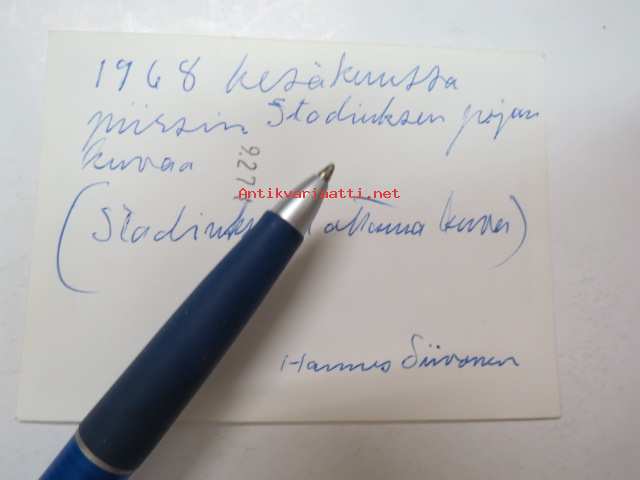 1968 kesäkuussa
piirsin Stadiuksen pojan
kuvaa
Antikvariaatti.net
ottama kuva)
Hannes Siivonen